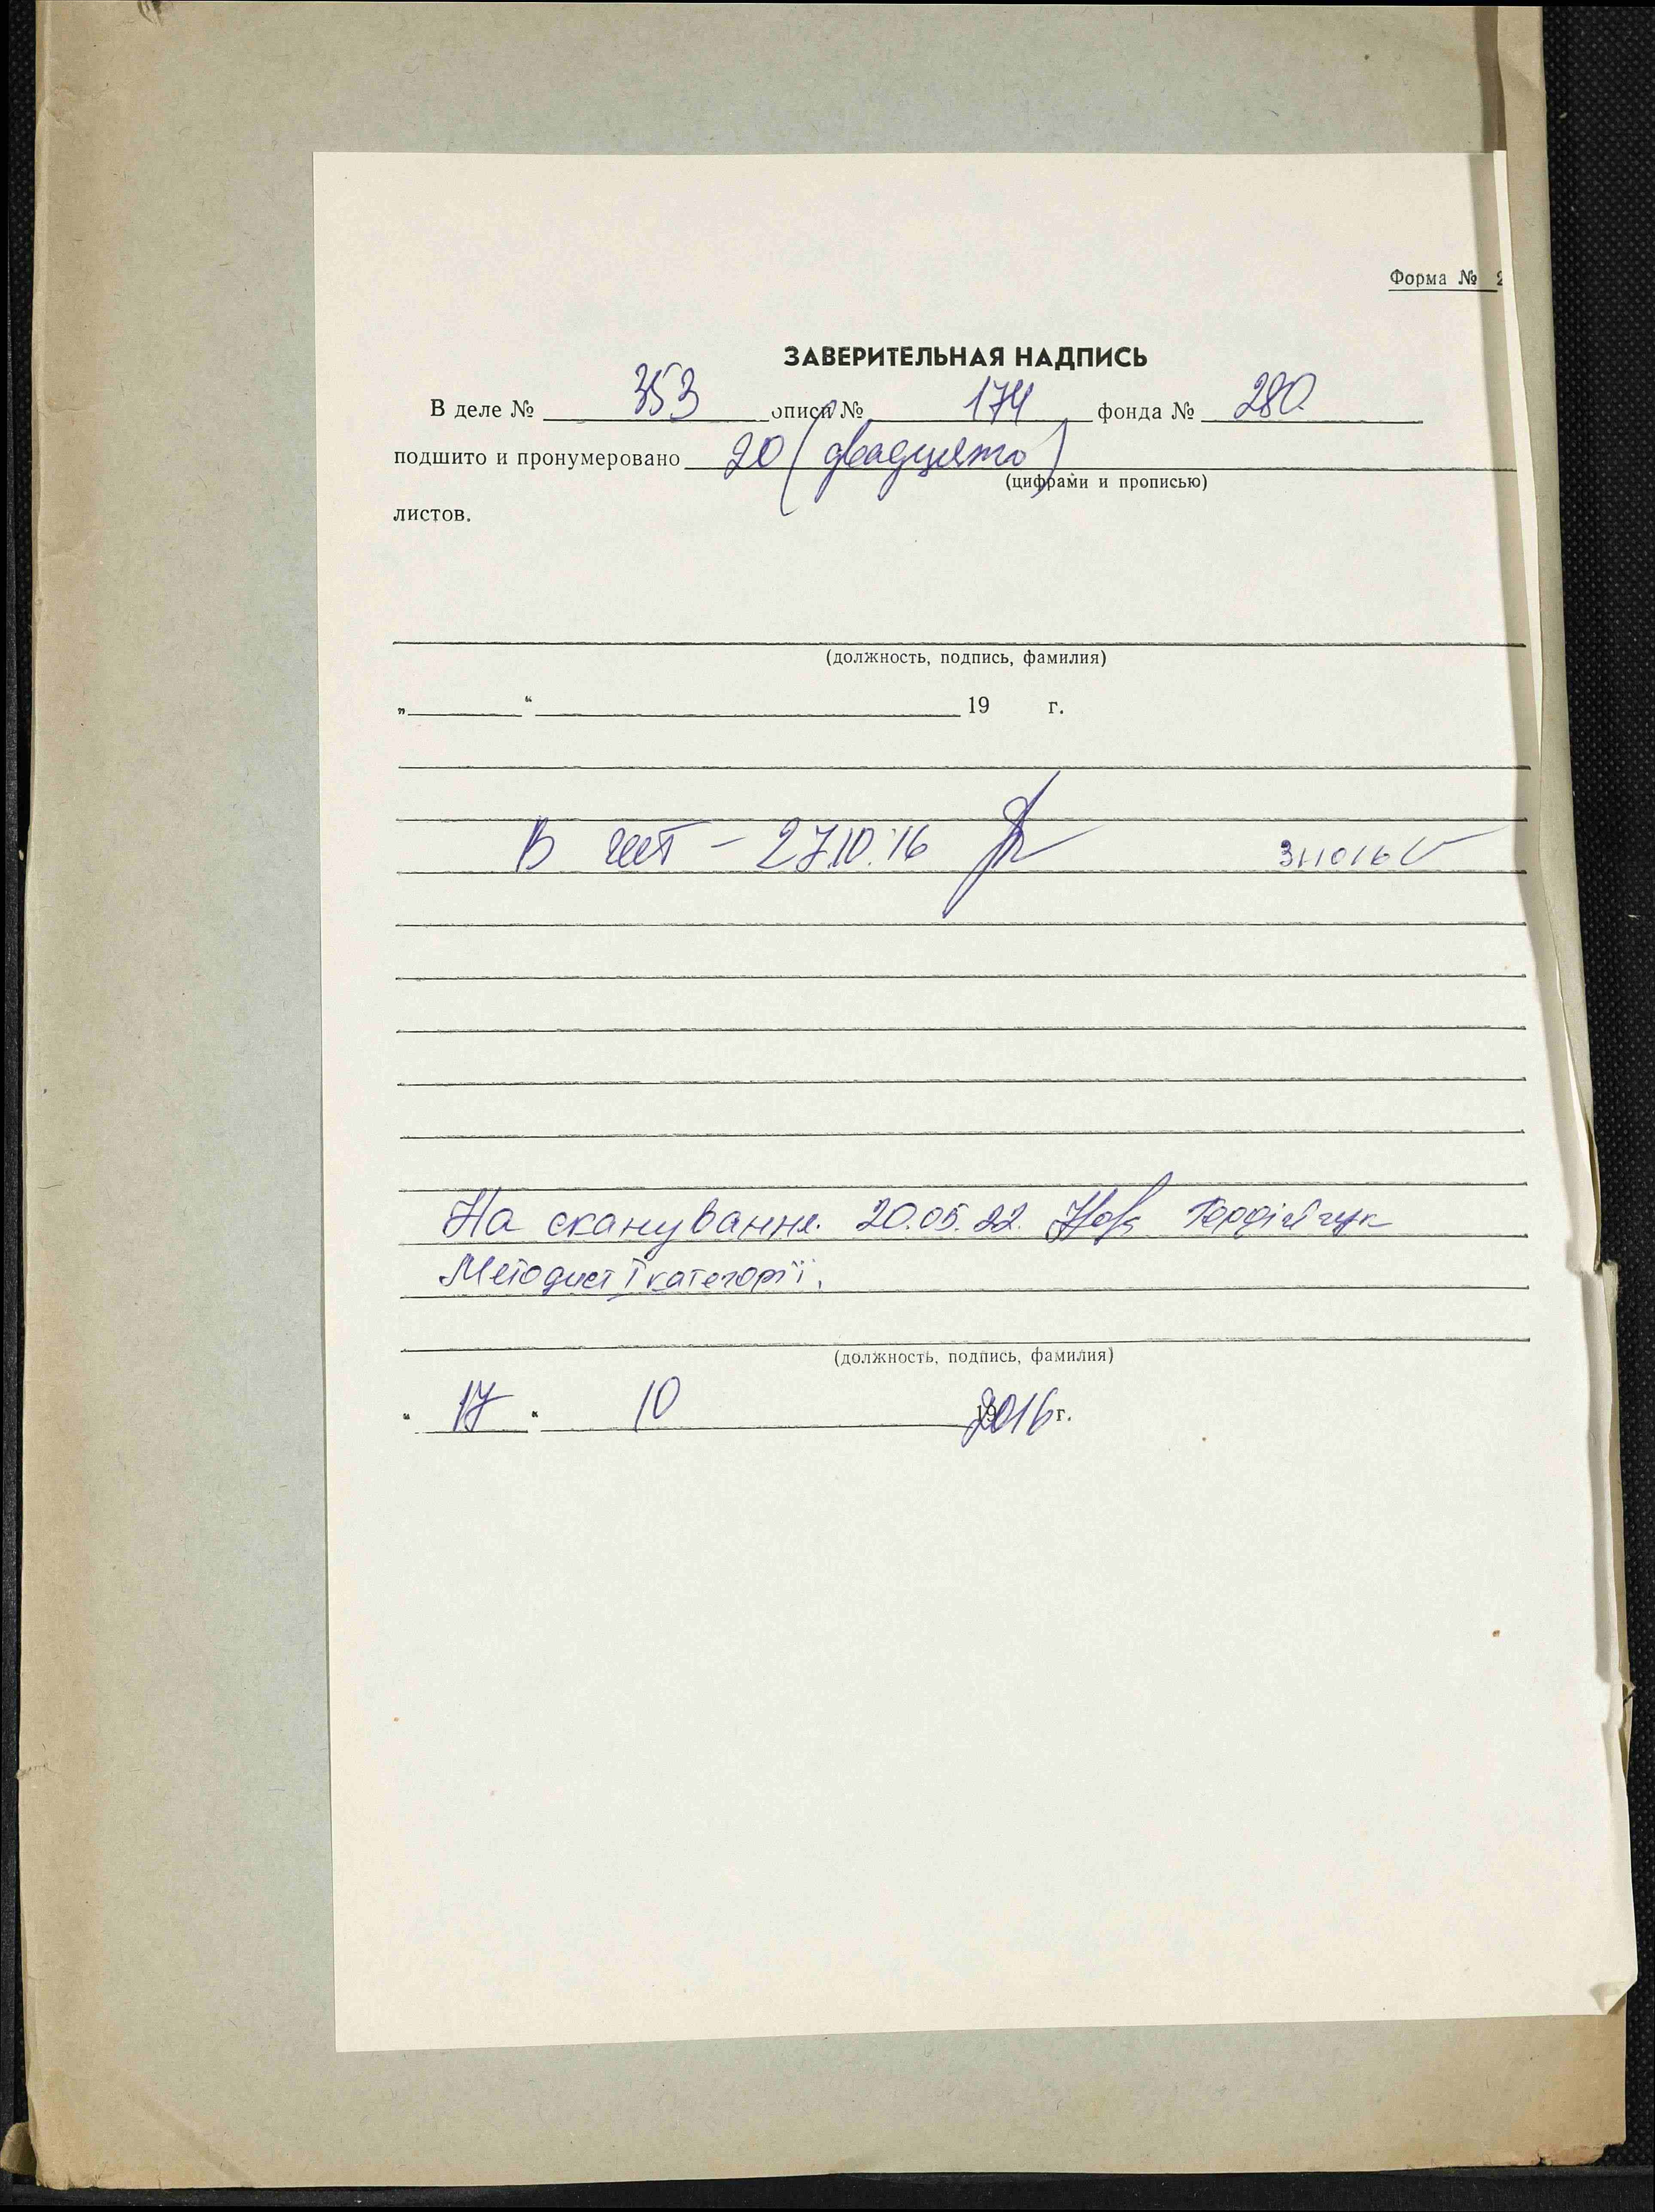 Форма № 2
ЗАВЕРИТЕЛЬНАЯ НАДПИСЬ
В деле № 353 описи № 174 фонда № 280
подшито и пронумеровано 20 (двадцять)
(цифрами и прописью)
листов.
(должность, подпись, фамилия)
„ “ 19 г.
В чит – 27.10.16 311016
На сканування. 20.05.22. Гордійчук
Методист І категорії.
(должность, подпись, фамилия)
„ 17 “ 10 2016 г.